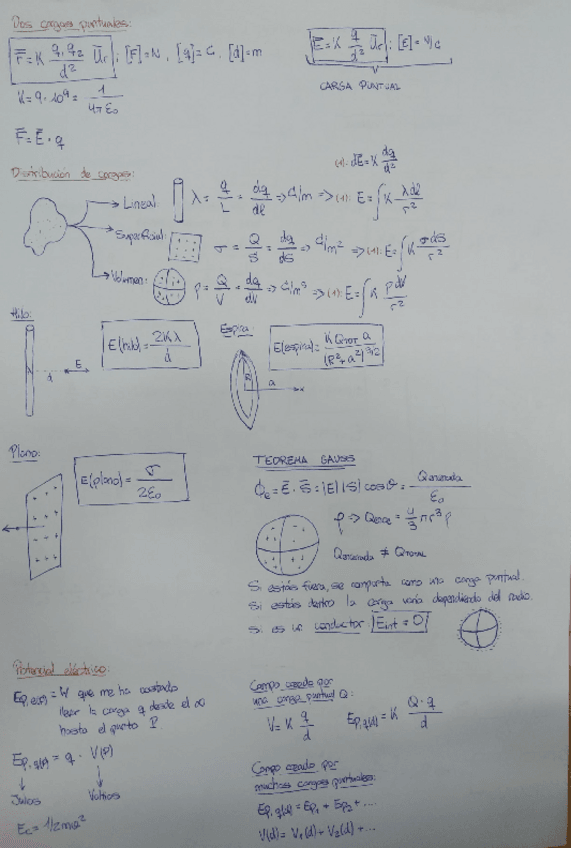 Dos cargas puntuales:
F̄ = K q₁ q₂ / d² Ūr ; [F]=N , [q]=C , [d]=m
Ē = K q / d² Ūr ; [E] = N/C
CARGA PUNTUAL
K = 9 · 10⁹ = 1 / 4π ε₀
F̄ = Ē · q
Distribución de cargas:
(1): dE = K dq / d²
Lineal: λ = q / L = dq / dl => C/m => (1): E = ∫ K λdl / r²
Superficial: σ = Q / S = dq / dS => C/m² => (1): E = ∫ K σdS / r²
Volumen: ρ = Q / V = dq / dV => C/m³ => (1): E = ∫ K ρdV / r²
Hilo:
E(hilo) = 2Kλ / d
λ d E
Espira:
E(espira) = K QTOT a / (R² + a²)^3/2
R a x
Plano:
E(plano) = σ / 2ε₀
TEOREMA GAUSS
Φe = Ē · S̄ = |E| |S| cos θ = Qencerrada / ε₀
ρ => Qence = 4/3 π r³ ρ
Qencerrada ≠ QTOTAL
Si estás fuera, se comporta como una carga puntual.
Si estás dentro la carga varía dependiendo del radio.
Si es un conductor |Eint = 0|
Potencial eléctrico:
= W que me ha costado
llevar la carga q desde el ∞
hasta el punto P.
Ep,q(P) = q · V(P)
Julios Voltios
Ec = 1/2 mv²
Campo creado por
una carga puntual Q:
V = K q / d Ep,q(d) = K Q · q / d
Campo creado por
muchas cargas puntuales:
Ep,q(d) = Ep₁ + Ep₂ + ...
V(d) = V₁(d) + V₂(d) + ...